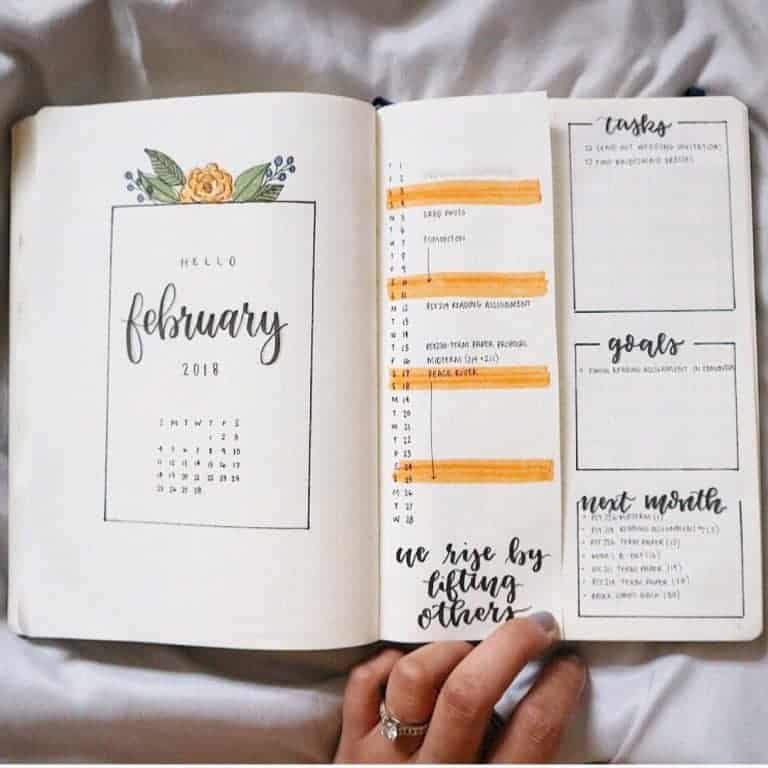 HELLO
february
2018
S M T W T F S
1 2 3
4 5 6 7 8 9 10
11 12 13 14 15 16 17
18 19 20 21 22 23 24
25 26 27 28
T 1
F 2
S 3
S 4
M 5 GRAD PHOTO
T 6
W 7 EDMONTON
T 8
F 9
S 10
S 11
M 12 READING ASSIGNMENT
T 13
W 14
T 15 TERM PAPER PROPOSAL
F 16 MIDTERM
S 17 PEACE RIVER
S 18
M 19
T 20
W 21
T 22
F 23
S 24
S 25
M 26
T 27
W 28
we rise by
lifting
others
tasks
SEND OUT WEDDING INVITATIONS
FIND BRIDESMAID DRESSES
goals
• FINISH READING ASSIGNMENT IN EDMONTON
next month
• MIDTERM
• READING ASSIGNMENT
• TERM PAPER
• TERM PAPER
• TERM PAPER